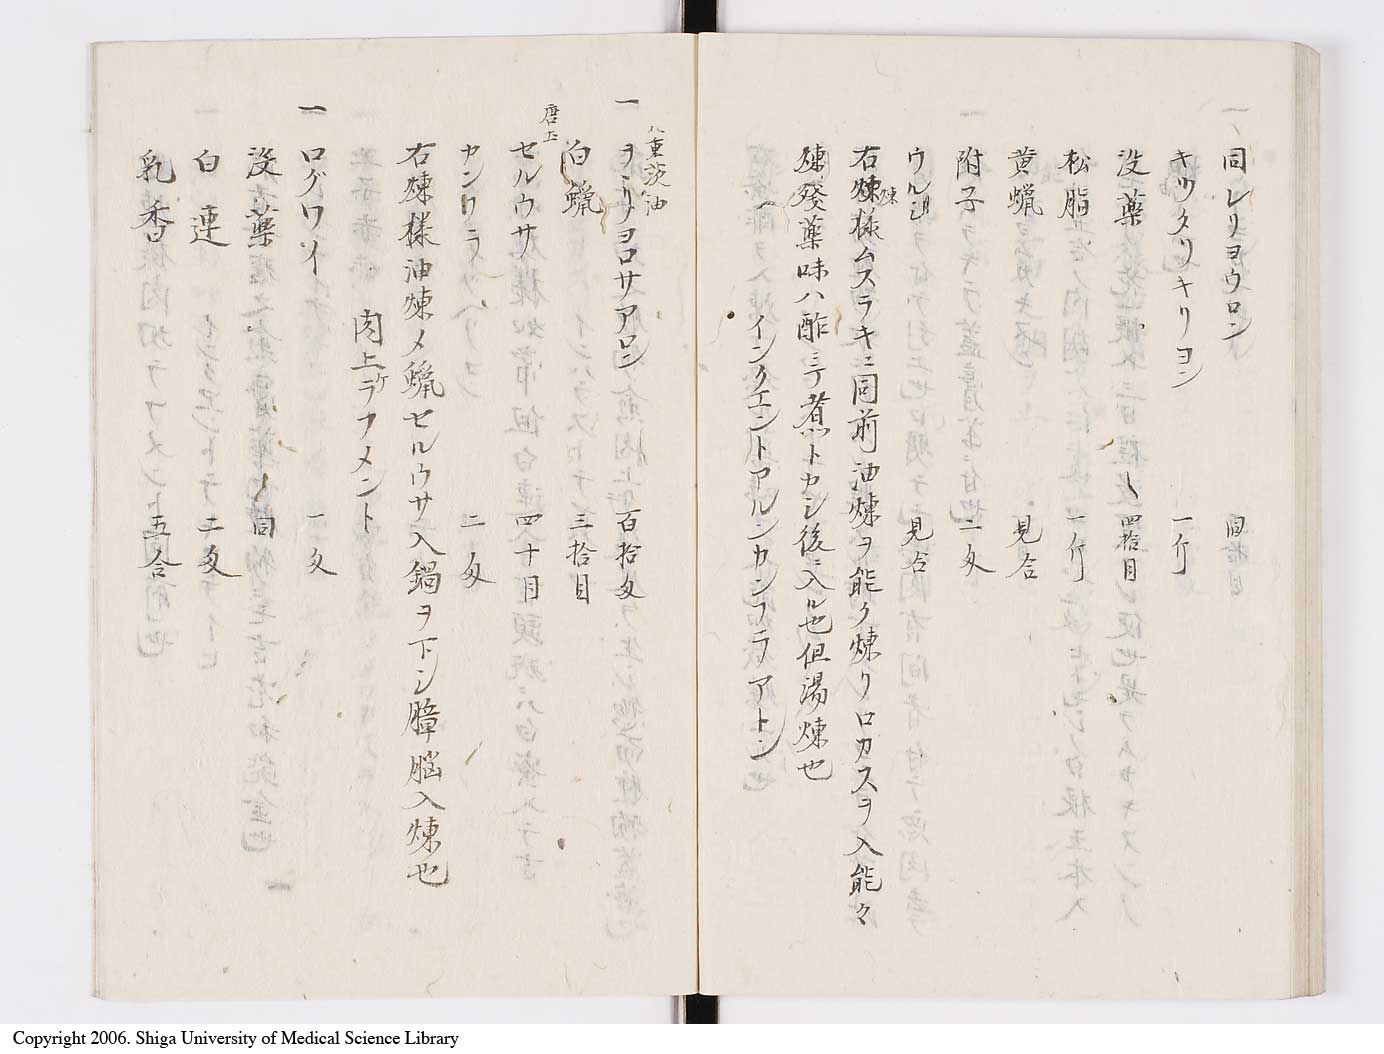 一同レリヨウロン 同拾目
キツタリキリヨン 一斤
没薬 四拾目
松脂 一斤
黄蝋 見合
附子 一匁
ウル 見合
右煉様ムスラキニ同前油煉ヲ能ク煉リロカスヲ入能々
煉發薬味ハ酢ニテ煮トカシ後ニ入ル也但湯煉也
インクエントアルシカンフラアトン
八重茨油
一ヲリヨロサアロン 百拾匁
白蝋 三拾目
唐土
セルウサ 四十目
カンフラ 二匁
右煉様油煉メ蝋セルウサ入鍋ヲ下シ膸脳入煉也
肉上ケラフメント
一ログワソイ 一匁
没薬 同
白連 二匁
乳香 五合
Copyright 2006. Shiga University of Medical Science Library